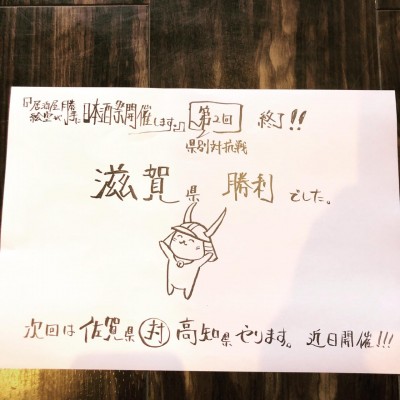 日本酒祭開催します♪』第2回 終了!!
県別対抗戦
滋賀県 勝利でした。
次回は佐賀県対高知県やります。近日開催!!!